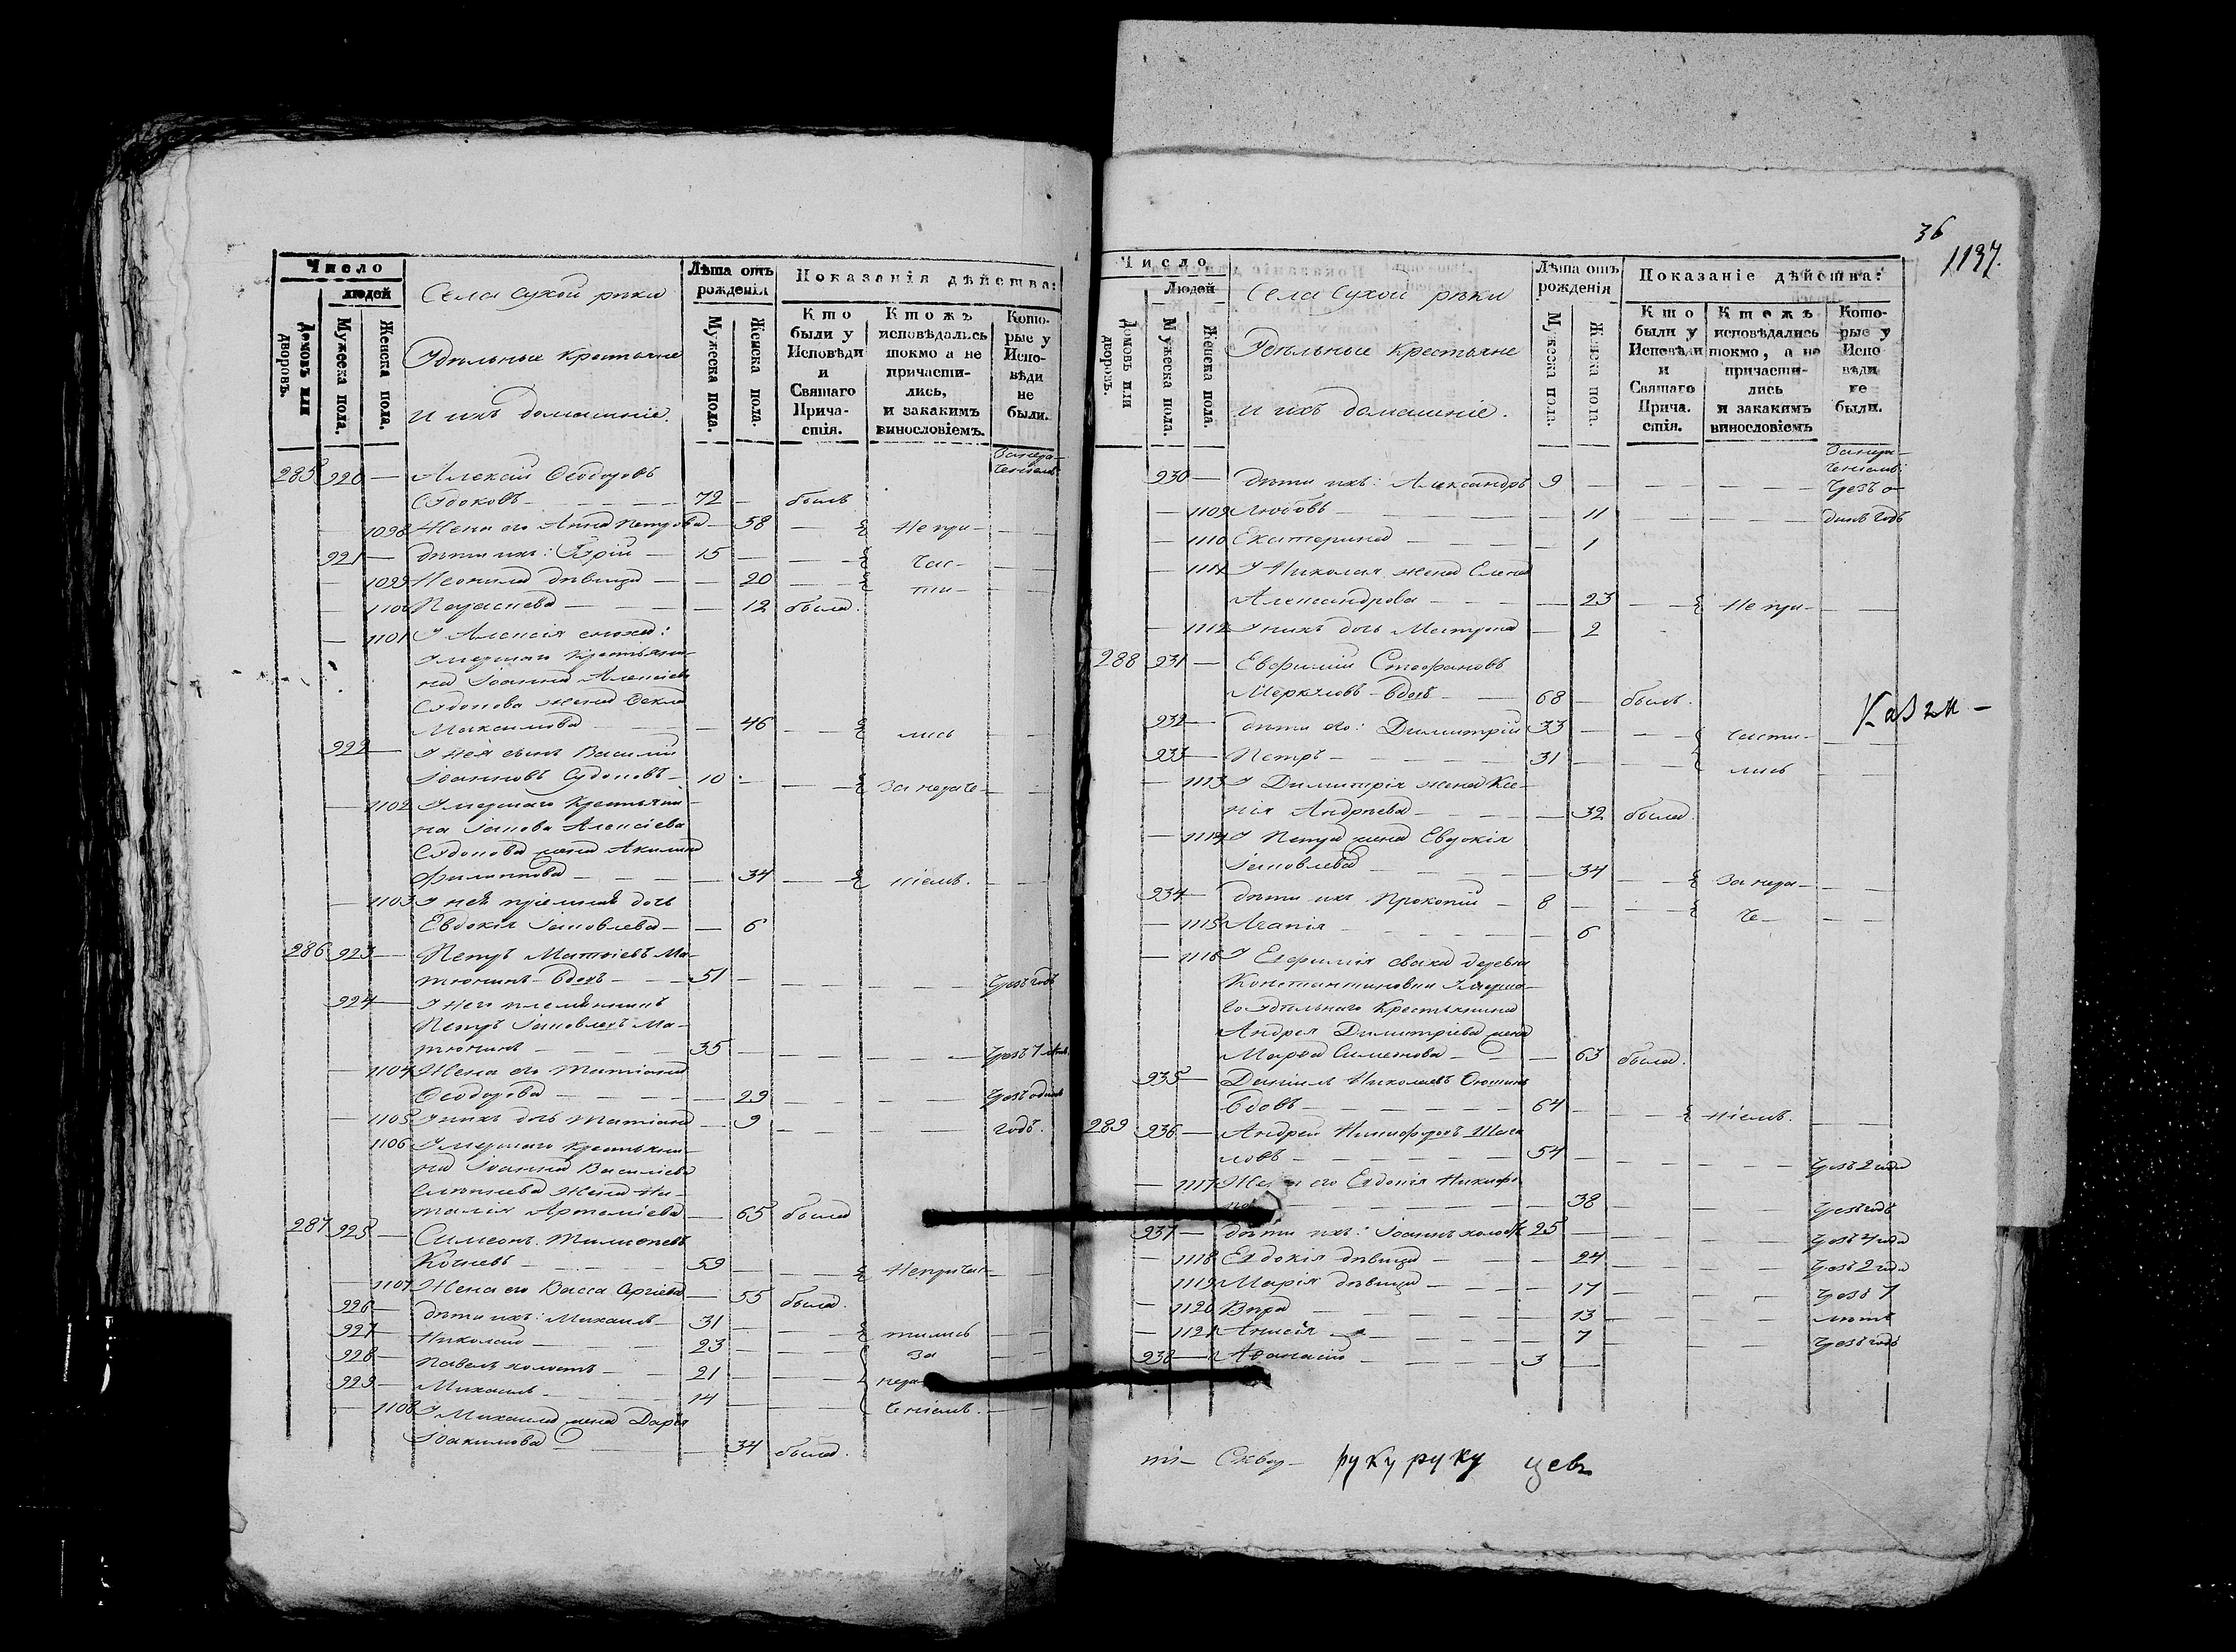 Число
людей
Домовъ или дворовъ.
Мужеска пола.
Женска пола.
Села Сухой рѣки
Удѣльные крестьяне
и ихъ домашніе.
Лѣта отъ рожденія
Мужеска пола.
Женска пола.
Показанія дѣйства:
Кто были у Исповѣди и Святаго Причастія.
Ктожъ исповѣдались токмо а не причастились, и закакимъ винословіемъ.
Которые у Исповѣди не были.
285 920 — Алексій Ѳеодоровъ
72 — былъ
1098 Жена его Анна Петрова — 58 — Не при-
921 — дѣти ихъ: — 15 — час-
1099 Неонила дѣвица — — 20 — ти-
— — — 12 была.
— 1101 У Алексія сноха:
Умершаго крестьяни-
на Іоанна Алексіева
жена Ѳекла
Максимова — — 46 — лись
922 — У нея сынъ Василій
Іоанновъ — 10 — За нераче-
— 1102 Умершаго крестьяни-
на Іакова Алексіева
жена Акилина
Филиппова — — 34 — ніемъ.
— 1103 У ней пріемная дочь
Евдокія Іаковлева — — 6
286 923 — Петръ Матвіевъ Ма-
тюнинъ вдовъ — 51 — Чрезъ годъ
924 — У него племянникъ
Петръ Іаковлевъ Ма-
тюнинъ — 35 — Чрезъ 7 лѣтъ
— 1104 Жена его Татіана
Ѳеодорова — — 29 — Чрезъ одинъ
— 1105 У нихъ дочь Татіана — 9 — годъ.
1106 Умершаго крестьяни-
на Іоанна Василіева
жена На-
талія Артеміева — 65 была
287 925 — Симеонъ
59 — Непричас-
— 1107 Жена его Васса Сергіева — 55 была.
926 — дѣти ихъ: Михаилъ — 31 — тились
927 — Николай — 23 — За
928 — Павелъ холостъ — 21 — нера-
929 — Михаилъ — 14 — ченіемъ.
— 1108 У Михаила жена Дарія
Іоакимова — — 34 была.
36
1137.
Число
Людей
Домовъ или дворовъ.
Мужеска пола.
Женска пола.
Села Сухой рѣки
Удѣльные крестьяне
и ихъ домашніе.
Лѣта отъ рожденія
Мужеска пола.
Женска пола.
Показаніе дѣйства:
Кто были у Исповѣди и Святаго Прича. стія.
Ктожъ исповѣдались токмо, а не причастились и закакимъ винословіемъ
Которые у Исповѣди не были.
За нера-
ченіемъ
930 — дѣти ихъ: Александръ 9 — Чрезъ о-
— 1109 Любовь — — 11 — динъ годъ
— 1110 Екатерина — — 1
— 1111 У Николая жена Елена
Александрова — — 23 — Не при-
— 1112 У нихъ дочь Матрона — 2
288 931 — Евфимій Стефановъ
Меркуловъ вдовъ — 68 — былъ.
Казги-
932 — дѣти его: Димитрій 33 — части-
933 — Петръ — 31 — лись
— 1113 У Димитрія жена Ксе-
нія Андреева — — 32 была.
— 1114 У Петра жена Евдокія
Іаковлева — — 34 — За нера-
934 — дѣти ихъ Прокопій — 8 — че-
— 1115 Агапія — — 6
— 1116 У Евфимія сваха деревни
Константиновки Умерша-
го удѣльнаго крестьянина
Андрея Димитріева жена
Марѳа Симеонова — — 63 была.
935 — Даніилъ Николаевъ
вдовъ — 64 — ніемъ.
289 936 — Андрей Никифоровъ
54 — Чрезъ 2 года
— 1117 Жена его Евдокія
38 — Чрезъ годъ
937 — дѣти ихъ: Іоаннъ холостъ 25 — Чрезъ 4 года
— 1118 Евдокія дѣвица — — 24 — Чрезъ 2 года
— 1119 Марія дѣвица — — 17 — Чрезъ 7
— 1120 Вѣра — — 13 — лѣтъ
— 1121 Анисія — — 7 — Чрезъ годъ
938 — Аѳанасій — 3 —
руку руку